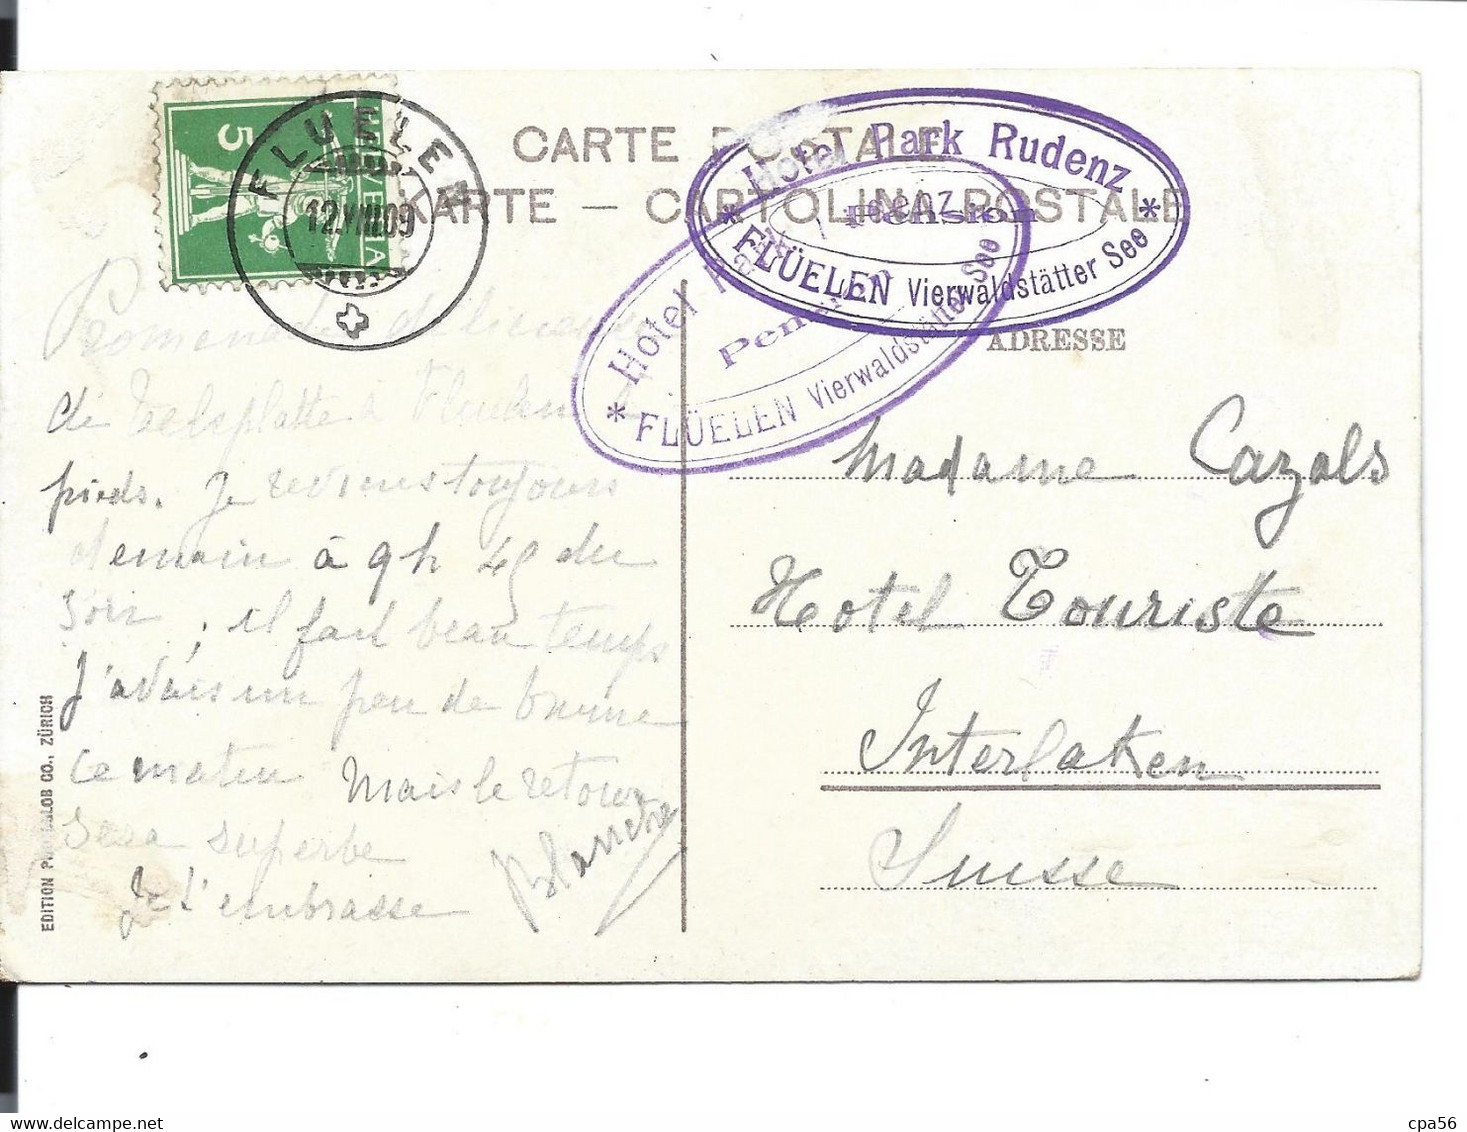 CARTE POSTALE
KARTE – CARTOLINA POSTALE
FLUELEN
12.VIII.09
5
HELVETIA
Hotel Park Rudenz
Pension
* FLÜELEN Vierwaldstätter See *
Hotel Park Rudenz
Pension
* FLÜELEN Vierwaldstätter See
ADRESSE
Promenade délicieuse
de Tellsplatte à Fluelen à
pieds. Je reviens toujours
demain à 9h 45 du
soir, il fait beau temps
J'avais un peu de brume
ce matin Mais le retour
sera superbe
Je t'embrasse
Blanche
Madame Cazals
Hotel Touriste
Interlaken
Suisse
EDITION PHOTOGLOB CO., ZÜRICH
cpa56